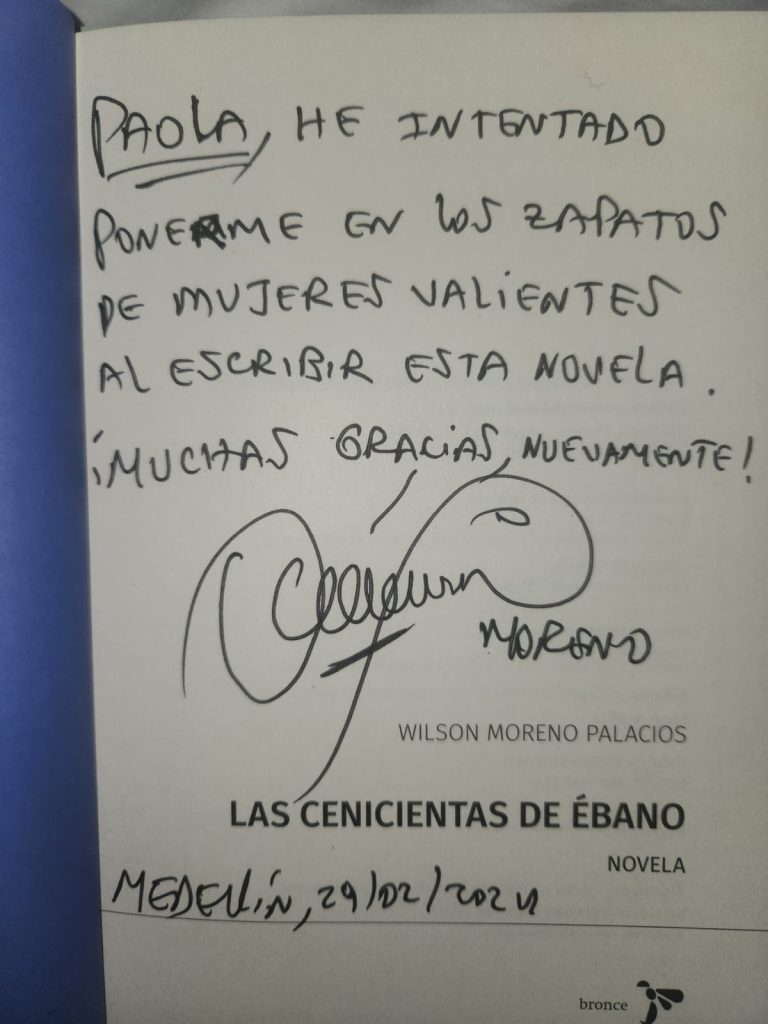 PAOLA, HE INTENTADO
PONERME EN LOS ZAPATOS
DE MUJERES VALIENTES
AL ESCRIBIR ESTA NOVELA.
¡MUCHAS GRACIAS, NUEVAMENTE!
MORENO
WILSON MORENO PALACIOS
LAS CENICIENTAS DE ÉBANO
NOVELA
MEDELLÍN, 29/02/2024
bronce